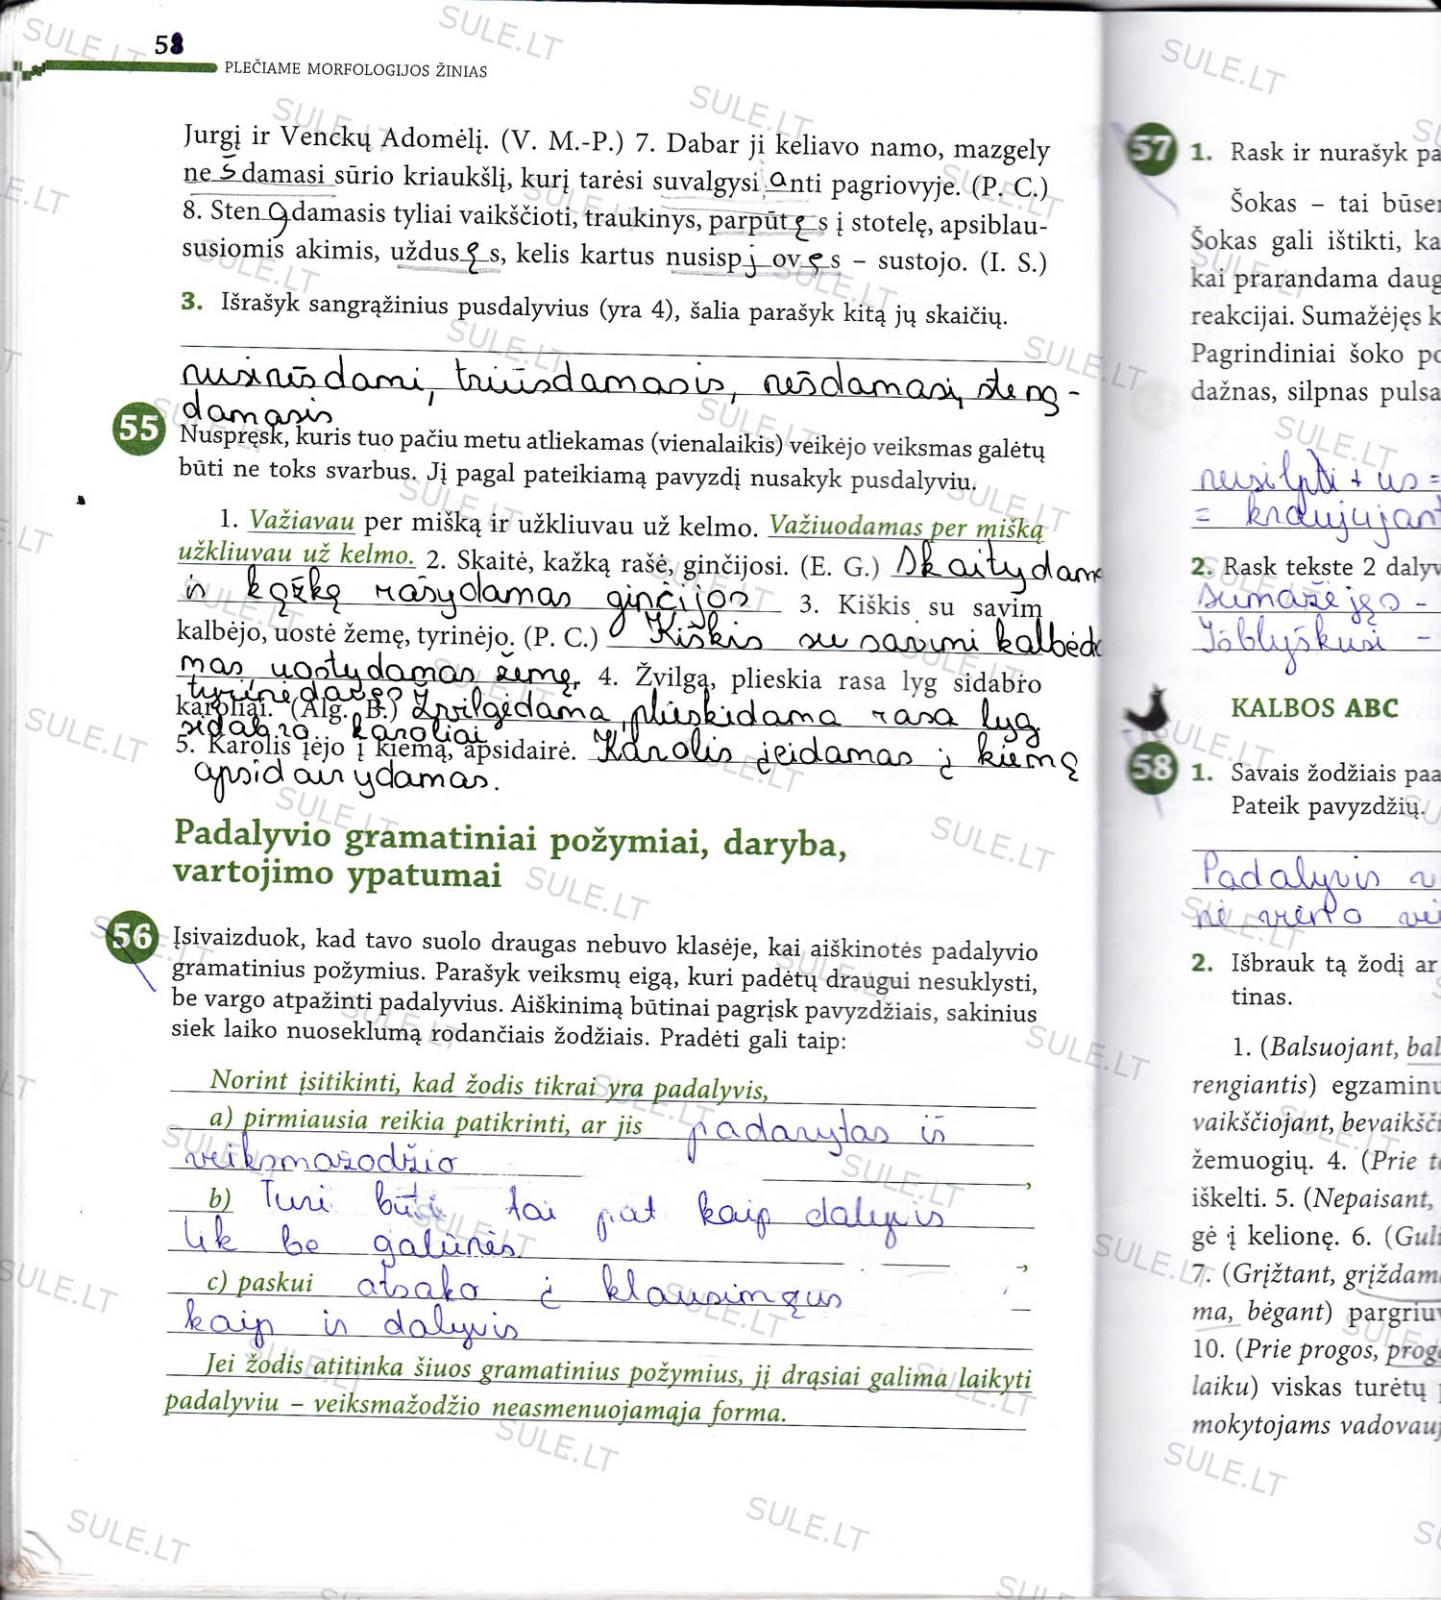 58
PLEČIAME MORFOLOGIJOS ŽINIAS
Jurgį ir Venckų Adomėlį. (V. M.-P.) 7. Dabar ji keliavo namo, mazgely
ne š damasi sūrio kriaukšlį, kurį tarėsi suvalgysi a nti pagriovyje. (P. C.)
8. Sten g damasis tyliai vaikščioti, traukinys, parpūt ę s į stotelę, apsiblau-
susiomis akimis, uždus ę s, kelis kartus nusisp j ov ę s – sustojo. (I. S.)
3. Išrašyk sangrąžinius pusdalyvius (yra 4), šalia parašyk kitą jų skaičių.
triūsdamasis, nešdamasi, steng-
damasis
55 Nuspręsk, kuris tuo pačiu metu atliekamas (vienalaikis) veikėjo veiksmas galėtų
būti ne toks svarbus. Jį pagal pateikiamą pavyzdį nusakyk pusdalyviu.
1. Važiavau per mišką ir užkliuvau už kelmo. Važiuodamas per mišką
užkliuvau už kelmo. 2. Skaitė, kažką rašė, ginčijosi. (E. G.) Skaitydama
ir kąžką rašydamas ginčijos 3. Kiškis su savim
kalbėjo, uostė žemę, tyrinėjo. (P. C.) Kiškis su savimi kalbėda
mas, uostydamas žemę, 4. Žvilga, plieskia rasa lyg sidabro
tyrinėdavo
karoliai. (Alg. B.) Žvilgėdama, plieskidama rasa lyg
sidabro karoliai
5. Karolis įėjo į kiemą, apsidairė. Karolis įeidamas į kiemą
apsidairydamas.
Padalyvio gramatiniai požymiai, daryba,
vartojimo ypatumai
56 Įsivaizduok, kad tavo suolo draugas nebuvo klasėje, kai aiškinotės padalyvio
gramatinius požymius. Parašyk veiksmų eigą, kuri padėtų draugui nesuklysti,
be vargo atpažinti padalyvius. Aiškinimą būtinai pagrįsk pavyzdžiais, sakinius
siek laiko nuoseklumą rodančiais žodžiais. Pradėti gali taip:
Norint įsitikinti, kad žodis tikrai yra padalyvis,
a) pirmiausia reikia patikrinti, ar jis padarytas iš
veiksmažodžio ,
b) Turi būti tai pat kaip dalyvis
tik be galūnės ,
c) paskui atsako į klausimąus
kaip ir dalyvis
Jei žodis atitinka šiuos gramatinius požymius, jį drąsiai galima laikyti
padalyviu – veiksmažodžio neasmenuojamąja forma.
57 1. Rask ir nurašyk pa
Šokas – tai būsen
Šokas gali ištikti, ka
kai prarandama daug
reakcijai. Sumažėjęs k
Pagrindiniai šoko po
dažnas, silpnas pulsa
nusilpti + us =
= kraujujant
2. Rask tekste 2 dalyv
Sumažėjęs -
Išblyškusi -
KALBOS ABC
58 1. Savais žodžiais paa
Pateik pavyzdžių.
Padalyvis
2. Išbrauk tą žodį ar
tinas.
1. (Balsuojant, bal
rengiantis) egzaminu
vaikščiojant, bevaikšči
žemuogių. 4. (Prie t
iškelti. 5. (Nepaisant,
gė į kelionę. 6. (Guli
7. (Grįžtant, grįždam
ma, bėgant) pargriuv
10. (Prie progos, prog
laiku) viskas turėtų
mokytojams vadovauj
SULE.LT